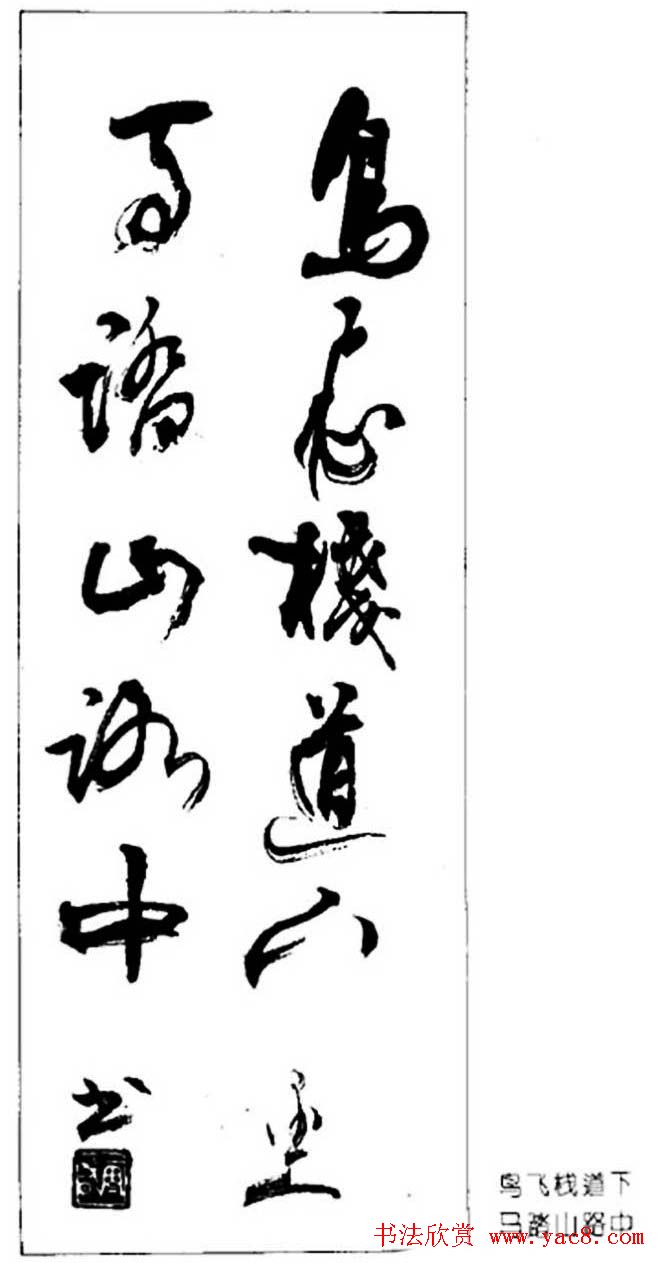 鳥飛棧道下
馬踏山路中 书
鸟飞栈道下
马踏山路中
书法欣赏 www.yac8.com